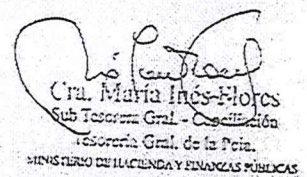 Cra. María Inés Flores
Sub Tesorera Gral. - Conciliación
Tesorería Gral. de la Pcia.
MINISTERIO DE HACIENDA Y FINANZAS PÚBLICAS